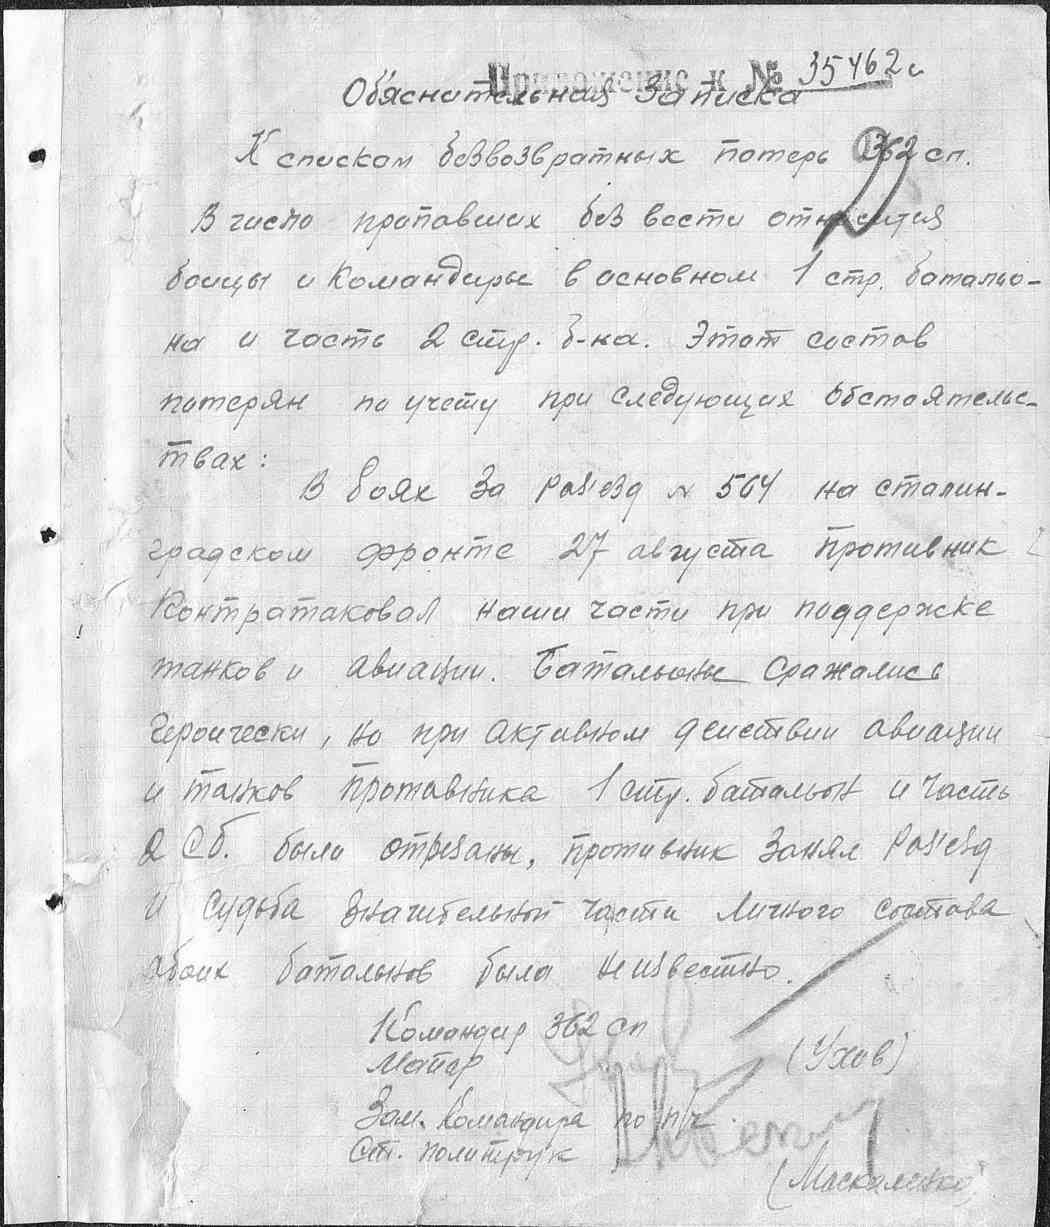 Приложение к № 35462с
Объяснительная Записка
К спискам безвозвратных потерь 362 сп.
В число пропавших без вести относится
бойцы и Командиры в основном 1 стр. батальо-
на и часть 2 стр. б-на. Этот состав
потерян по учету при следующих обстоятельс-
твах:
В боях За Раз'езд № 564 на сталин-
градском фронте 27 августа противник
Контратаковал наши части при поддержке
танков и авиации. Батальоны Сражались
Героически, но при Активном действии авиации
и танков Противника 1 стр. батальон и часть
2 Сб. были отрезаны, противник Занял Раз'езд
и судьба Значительной части Личного состава
обоих батальонов была неизвестна.
Командир 362 сп
Майор (Ухов)
Зам. Командира по п/ч
Ст. политрук
(Москаленко)